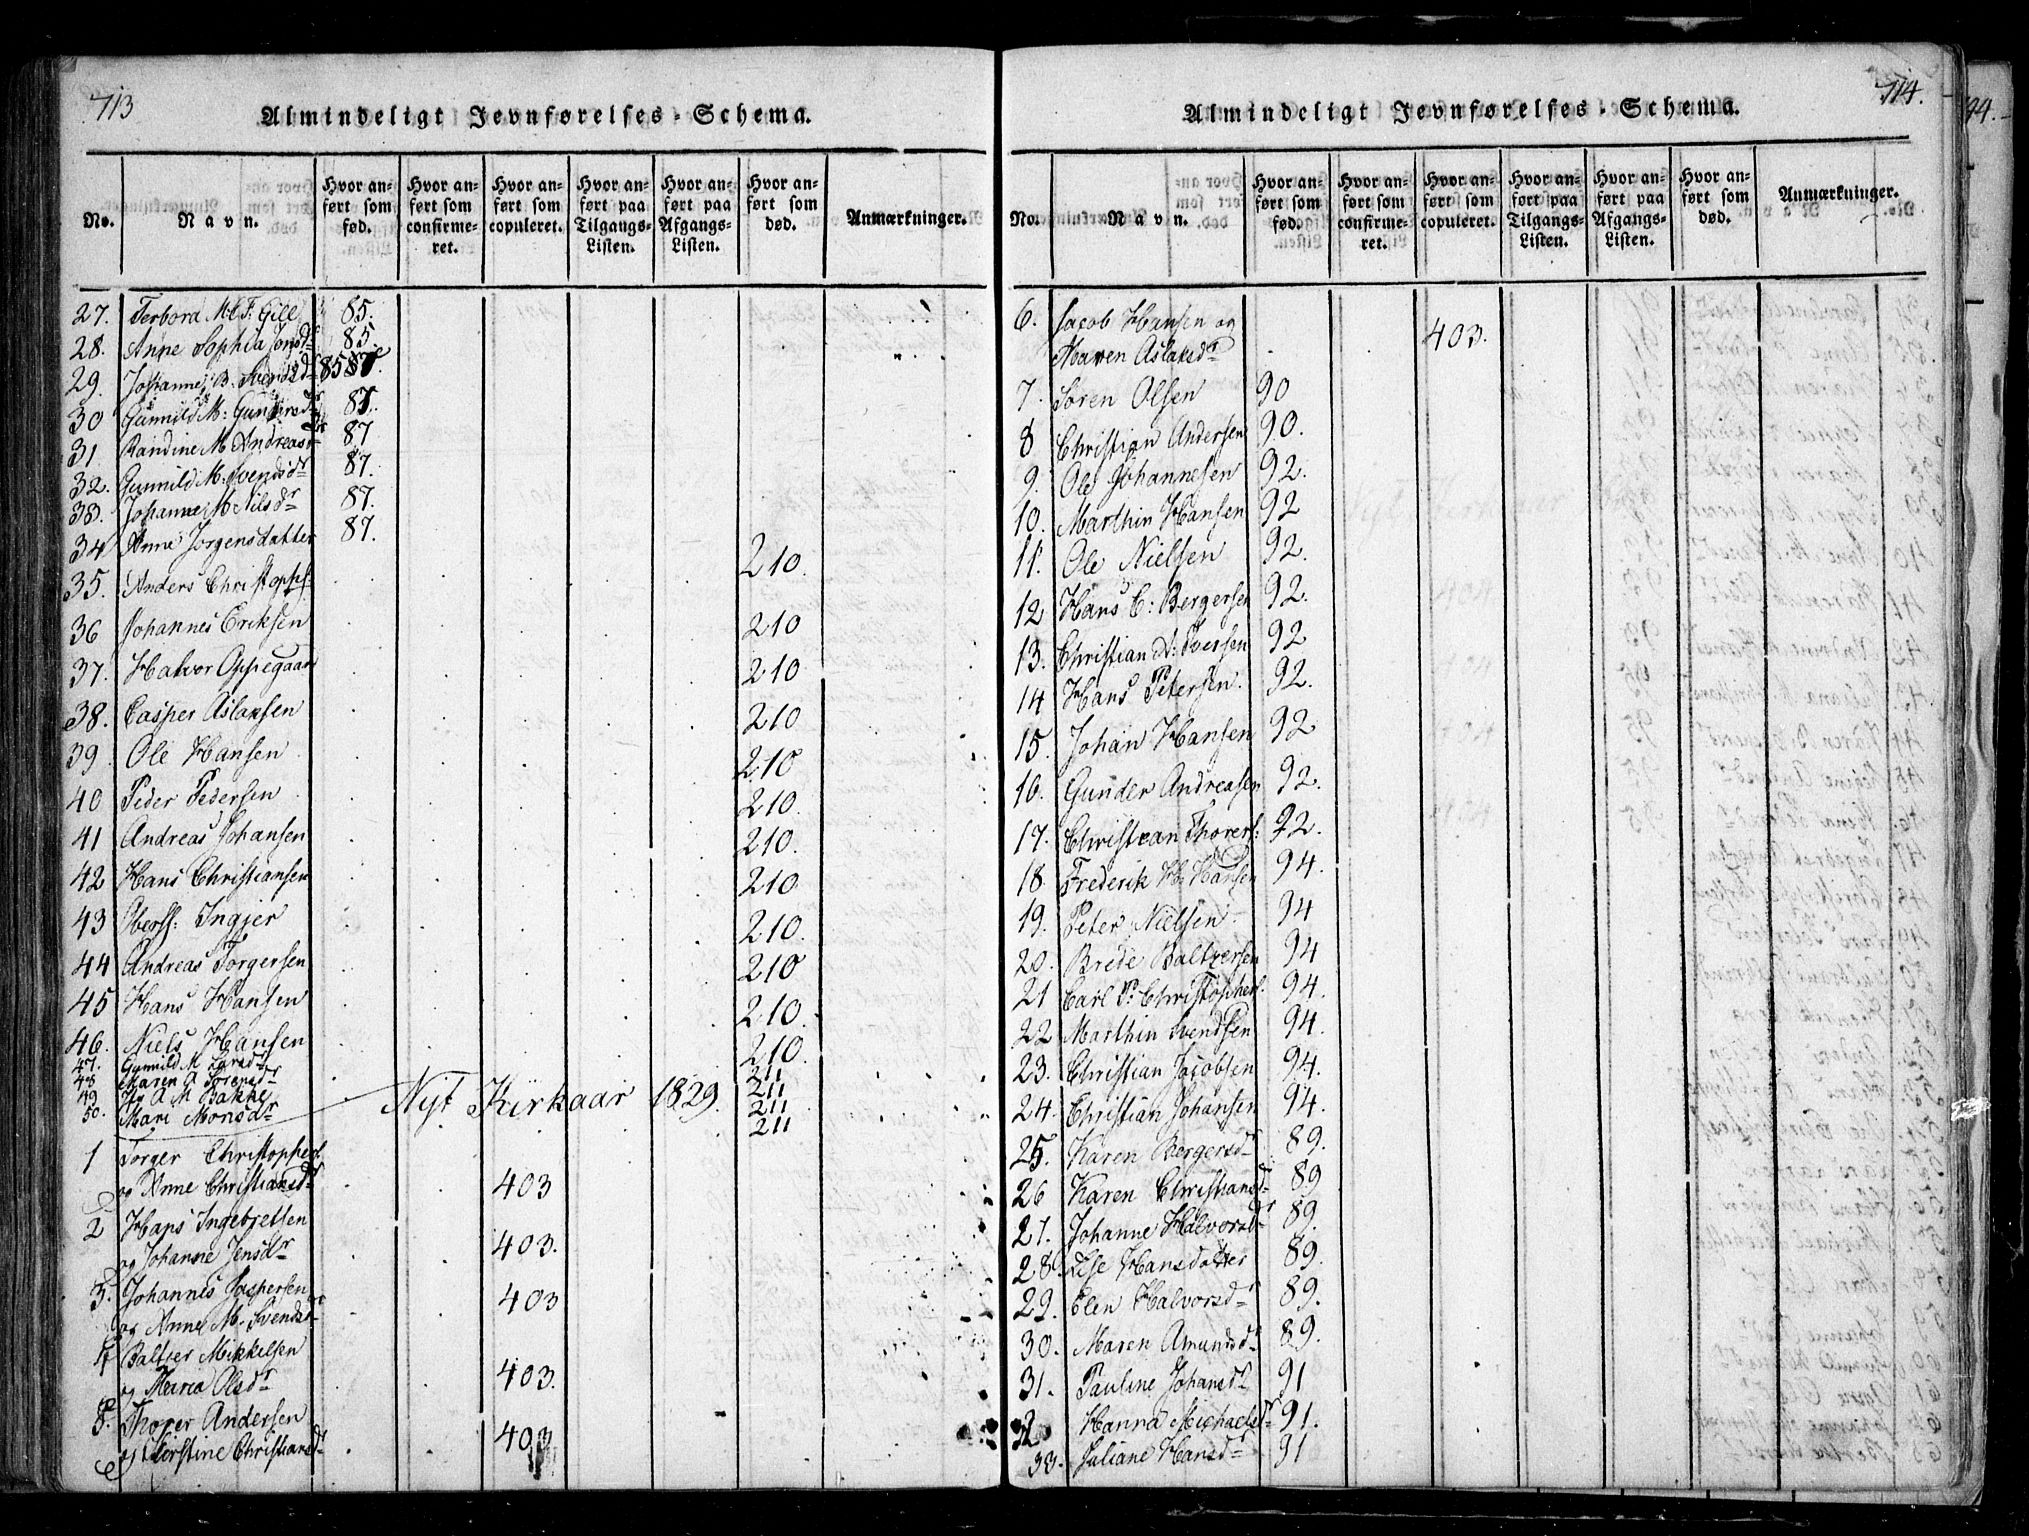 713
Almindeligt Jevnførelses-Schema.
No.
Navn.
Hvor anført som fød.
Hvor anført som confirmeret.
Hvor anført som copuleret.
Hvor anført paa Tilgangs-Listen.
Hvor anført paa Afgangs-Listen.
Hvor anført som død.
Anmærkninger.
27. Terbora M: F: Gill 85.
28. Anne Sophia Jonsdr 85.
29. Johanne B. Svendsdr 85
30 Gunnild M: Gundersdr 87.
31 Randine M Andreasdr 87
32. Gunnild M. Svendsdr 87.
33. Johanne M Nilsdr 87.
34 Anne Jörgensdatter 87.
35. Anders Christophs: 210.
36 Johannes Eriksen 210
37. Halvor Oppegaar 210
38. Casper Aslaksen 210
39 Ole Hansen 210
40 Peder Pedersen 210.
41 Andreas Johansen 210.
42 Hans Christiansen 210
43 Oberstl: Ingier 210.
44 Andreas Torgersen 210
45 Hans Hansen 210.
46. Niels Hansen 210.
47. Gunnild M Larsdr 211
48 Maren A Sörensdr 211
49 Hr A M Bakke 211
50. Mari Monsdr 211
Nyt Kirkaar 1829.
1 Torger Christophers.
og Anne Christiansdr 403
2 Hans Ingebretsen
og Johanne Jensdr 403.
3. Johannes Jespersen
og Anne M. Svendsdr 403
4 Baltzer Mikkelsen
og Maria Olsdr 403.
5. Thorer Andersen
og Kirstine Christiansdr 403
714.
Almindeligt Jevnførelses-Schema.
No.
Navn.
Hvor anført som fød.
Hvor anført som confirmeret.
Hvor anført som copuleret.
Hvor anført paa Tilgangs-Listen.
Hvor anført paa Afgangs-Listen.
Hvor anført som død.
Anmærkninger.
6. Jacob Hansen og
Maren Aslaksdr 403.
7. Sören Olsen 90
8 Christian Andersen 90.
9. Ole Johannesen 92.
10. Marthin Hansen 92
11. Ole Nielsen 92.
12 Hans C: Bergersen 92.
13. Christian A: Iversen 92
14 Hans Petersen. 92.
15. Johan Hansen 92
16. Gunder Andreasen 92.
17. Christian Thorers: 92.
18 Frederik H. Hansen 94.
19. Peter Nielsen 94
20. Brede Baltzersen 94
21 Carl P. Christophers. 94.
22 Marthin Svendsen 94.
23. Christian Jacobsen 94.
24. Christian Johansen 94.
25. Karen Bergersdr 89.
26 Karen Christiansdr 89
27. Johanne Halvorsdr 89
28. Else Hansdatter 89.
29. Elen Halvorsdr 89.
30. Maren Amundsdr 89.
31. Pauline Johansdr 91
32 Hanna Michaelsdr 91.
33. Juliane Hansdr 91
94.